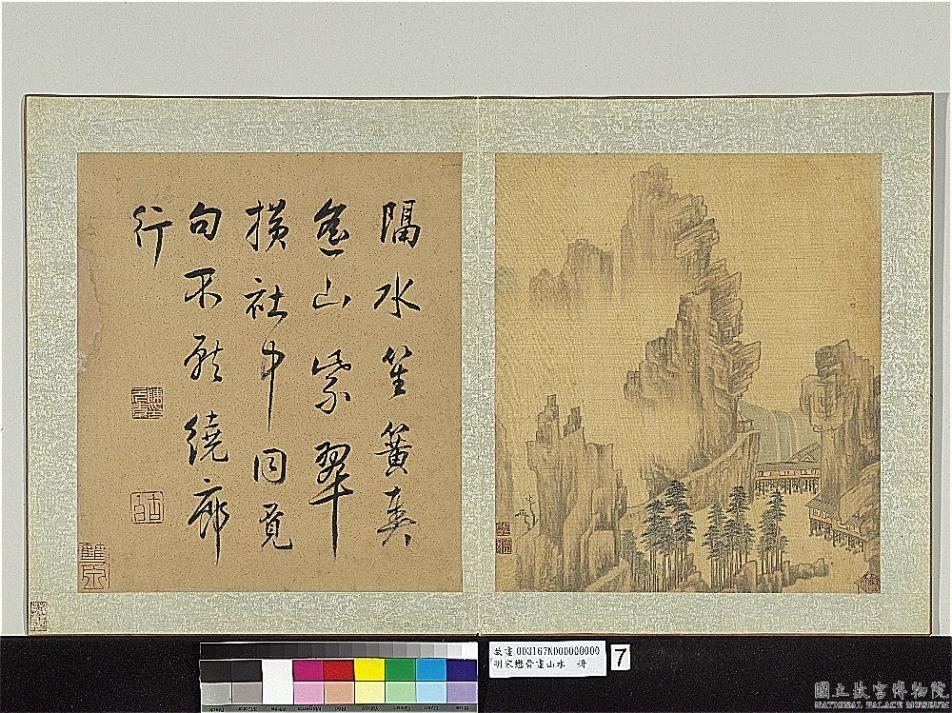 隔水笙簧奏
山紫翠
橫社中同覓
句不厭繞廊
行
故畫 003167N000000000
明宋懋晉畫山水 冊
7
國立故宮博物院
NATIONAL PALACE MUSEUM